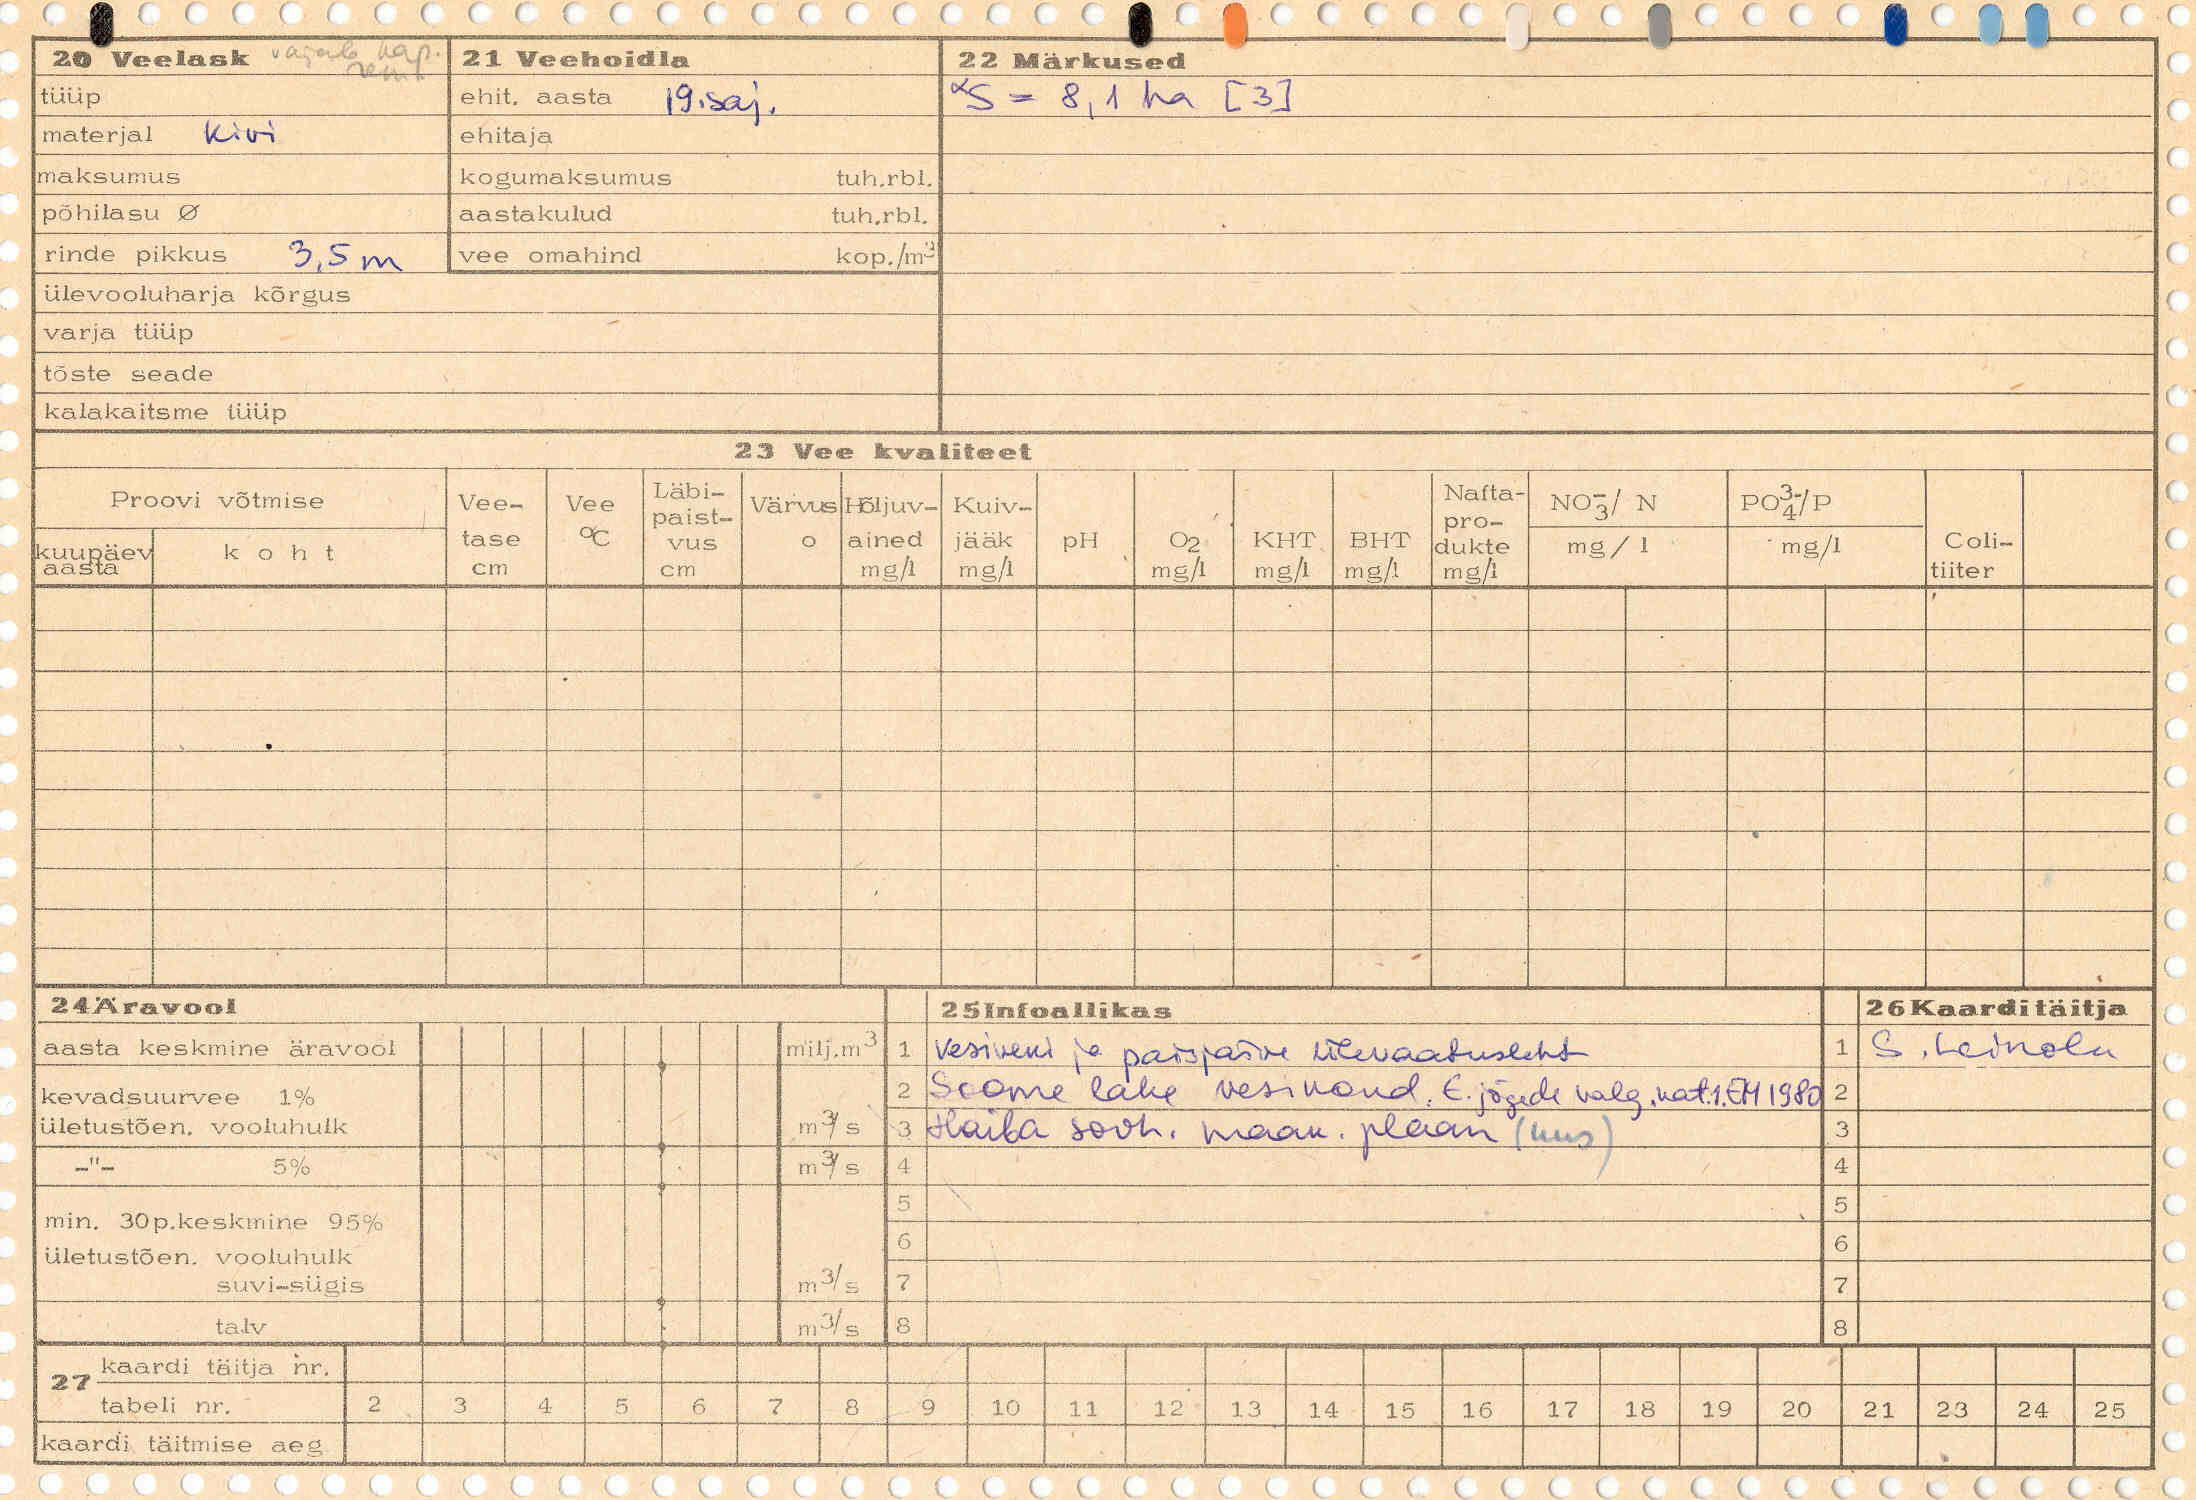 20 Veelask vajab kap. rem.
tüüp
materjal Kivi
maksumus
põhilasu Ø
rinde pikkus 3,5 m
ülevooluharja kõrgus
varja tüüp
tõste seade
kalakaitsme tüüp
21 Veehoidla
ehit. aasta 19. saj.
ehitaja
kogumaksumus tuh.rbl.
aastakulud tuh.rbl.
vee omahind kop./m³
22 Märkused
S = 8,1 ha [3]
23 Vee kvaliteet
Proovi võtmise
kuupäev aasta
koht
Vee-
tase
cm
Vee
°C
Läbi-
paist-
vus
cm
Värvus
o
Hõljuv-
ained
mg/l
Kuiv-
jääk
mg/l
pH
O2
mg/l
KHT
mg/l
BHT
mg/l
Nafta-
pro-
dukte
mg/l
NO3-/ N
mg/l
PO4 3-/P
mg/l
Coli-
tiiter
24 Äravool
aasta keskmine äravool milj.m³
kevadsuurvee 1%
ületustõen. vooluhulk m³/s
-"- 5% m³/s
min. 30p.keskmine 95%
ületustõen. vooluhulk
suvi-sügis m³/s
talv m³/s
25 Infoallikas
1 Vesiveski ja paisjärve ülevaatusleht
2 Soome lahe vesikond. E. jõgede valg. kat. 1. EM 1980
3 Haiba sovh. maak. plaan (uus)
4
5
6
7
8
26 Kaarditäitja
1 S. Leinola
2
3
4
5
6
7
8
27 kaardi täitja nr.
tabeli nr. 2 3 4 5 6 7 8 9 10 11 12 13 14 15 16 17 18 19 20 21 23 24 25
kaardi täitmise aeg